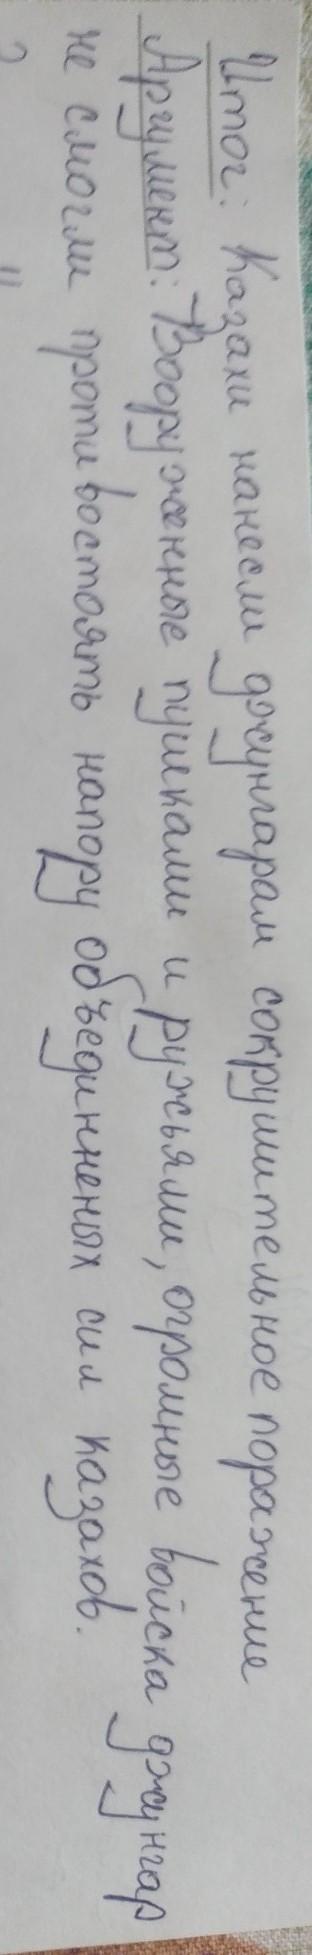 Итог: Казахи нанесли джунгарам сокрушительное поражение
Аргумент: Вооруженные пушками и ружьями, огромные войска джунгар
не смогли противостоять напору объединненых сил казахов.